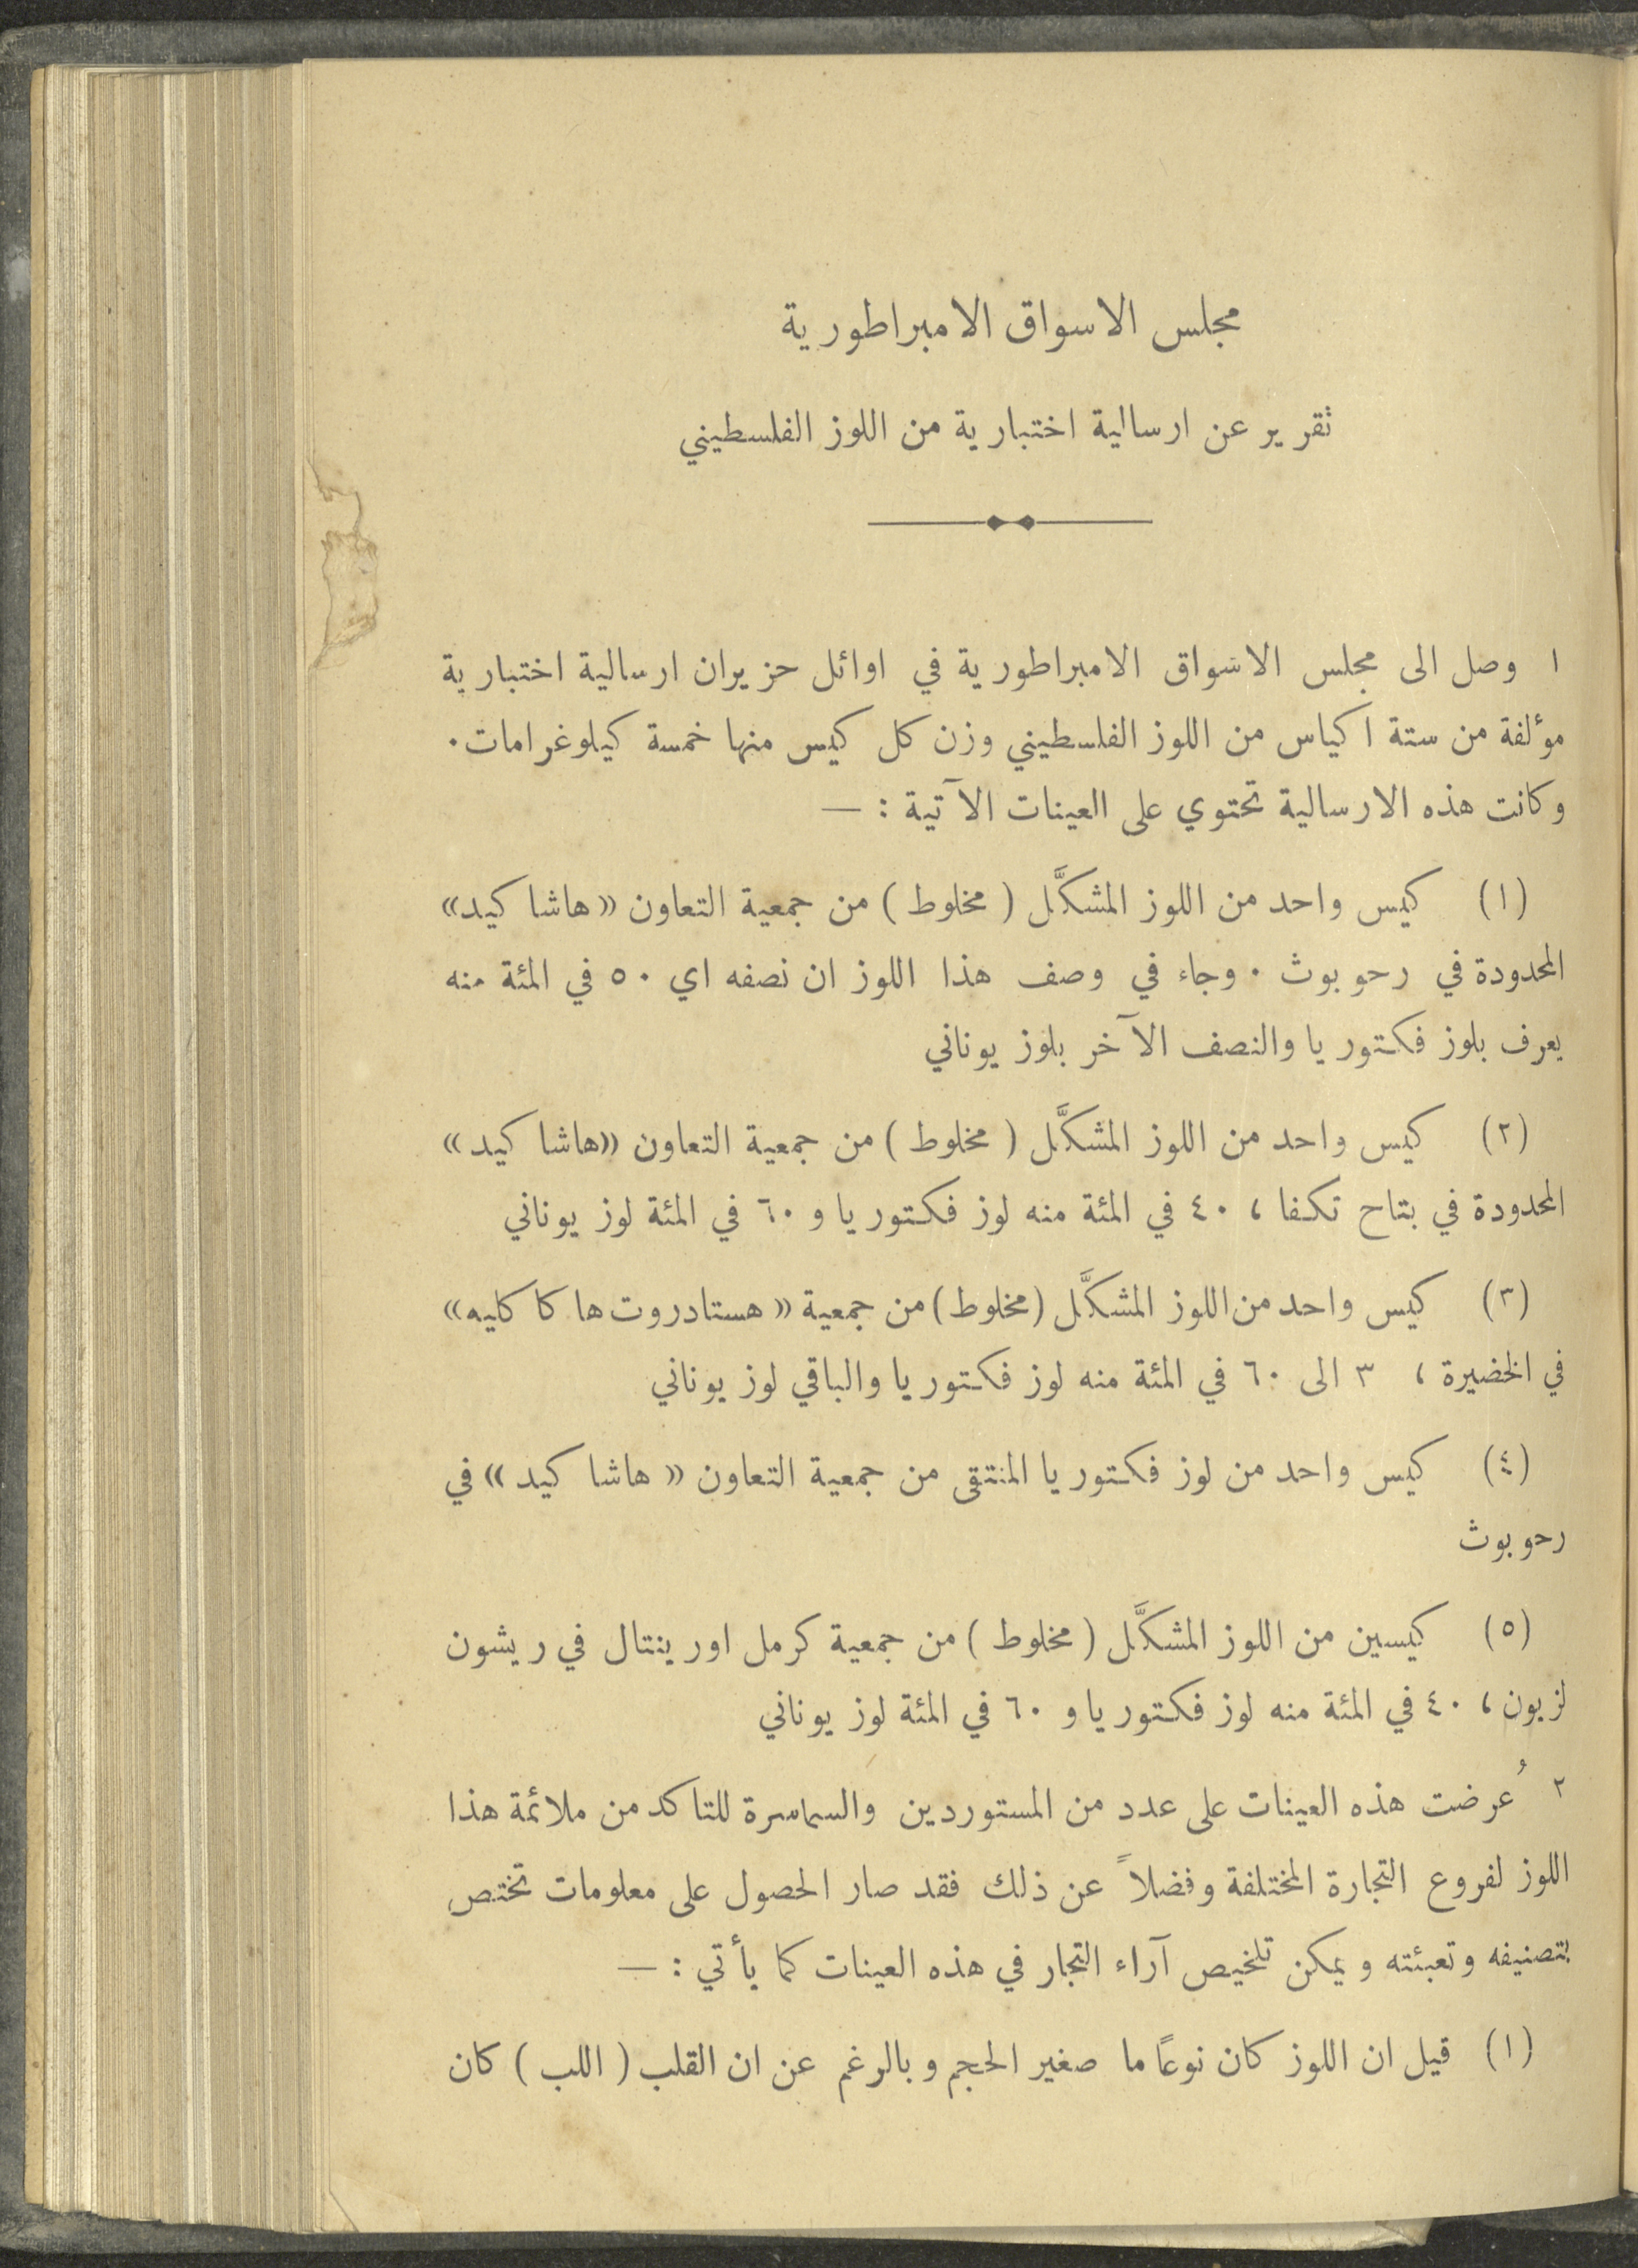 مجلس الاسواق الامبراطورية
تقرير عن ارسالية اختبارية من اللوز الفلسطيني
١ وصل الى مجلس الاسواق الامبراطورية في اوائل حزيران ارسالية اختبارية
مؤلفة من ستة اكياس من اللوز الفلسطيني وزن كل كيس منها خمسة كيلوغرامات.
وكانت هذه الارسالية تحتوي على العينات الآتية : —
(١) كيس واحد من اللوز المشكَّل ( مخلوط ) من جمعية التعاون «هاشا كيد»
المحدودة في رحوبوث . وجاء في وصف هذا اللوز ان نصفه اي ٥٠ في المئة منه
يعرف بلوز فكتوريا والنصف الآخر بلوز يوناني
(٢) كيس واحد من اللوز المشكَّل ( مخلوط ) من جمعية التعاون «هاشا كيد»
المحدودة في بتاح تكفا ، ٤٠ في المئة منه لوز فكتوريا و ٦٠ في المئة لوز يوناني
(٣) كيس واحد من اللوز المشكَّل (مخلوط) من جمعية « هستادروت ها كا كليه»
في الخضيرة ، ٣ الى ٦٠ في المئة منه لوز فكتوريا والباقي لوز يوناني
(٤) كيس واحد من لوز فكتوريا المنتقى من جمعية التعاون « هاشا كيد » في
رحوبوث
(٥) كيسين من اللوز المشكَّل ( مخلوط ) من جمعية كرمل اورينتال في ريشون
لزيون ، ٤٠ في المئة منه لوز فكتوريا و ٦٠ في المئة لوز يوناني
٢ عُرضت هذه العينات على عدد من المستوردين والسماسرة للتاكد من ملائمة هذا
اللوز لفروع التجارة المختلفة وفضلاً عن ذلك فقد صار الحصول على معلومات تختص
بتصنيفه وتعبئته ويمكن تلخيص آراء التجار في هذه العينات كما يأتي : —
(١) قيل ان اللوز كان نوعاً ما صغير الحجم وبالرغم عن ان القلب ( اللب ) كان